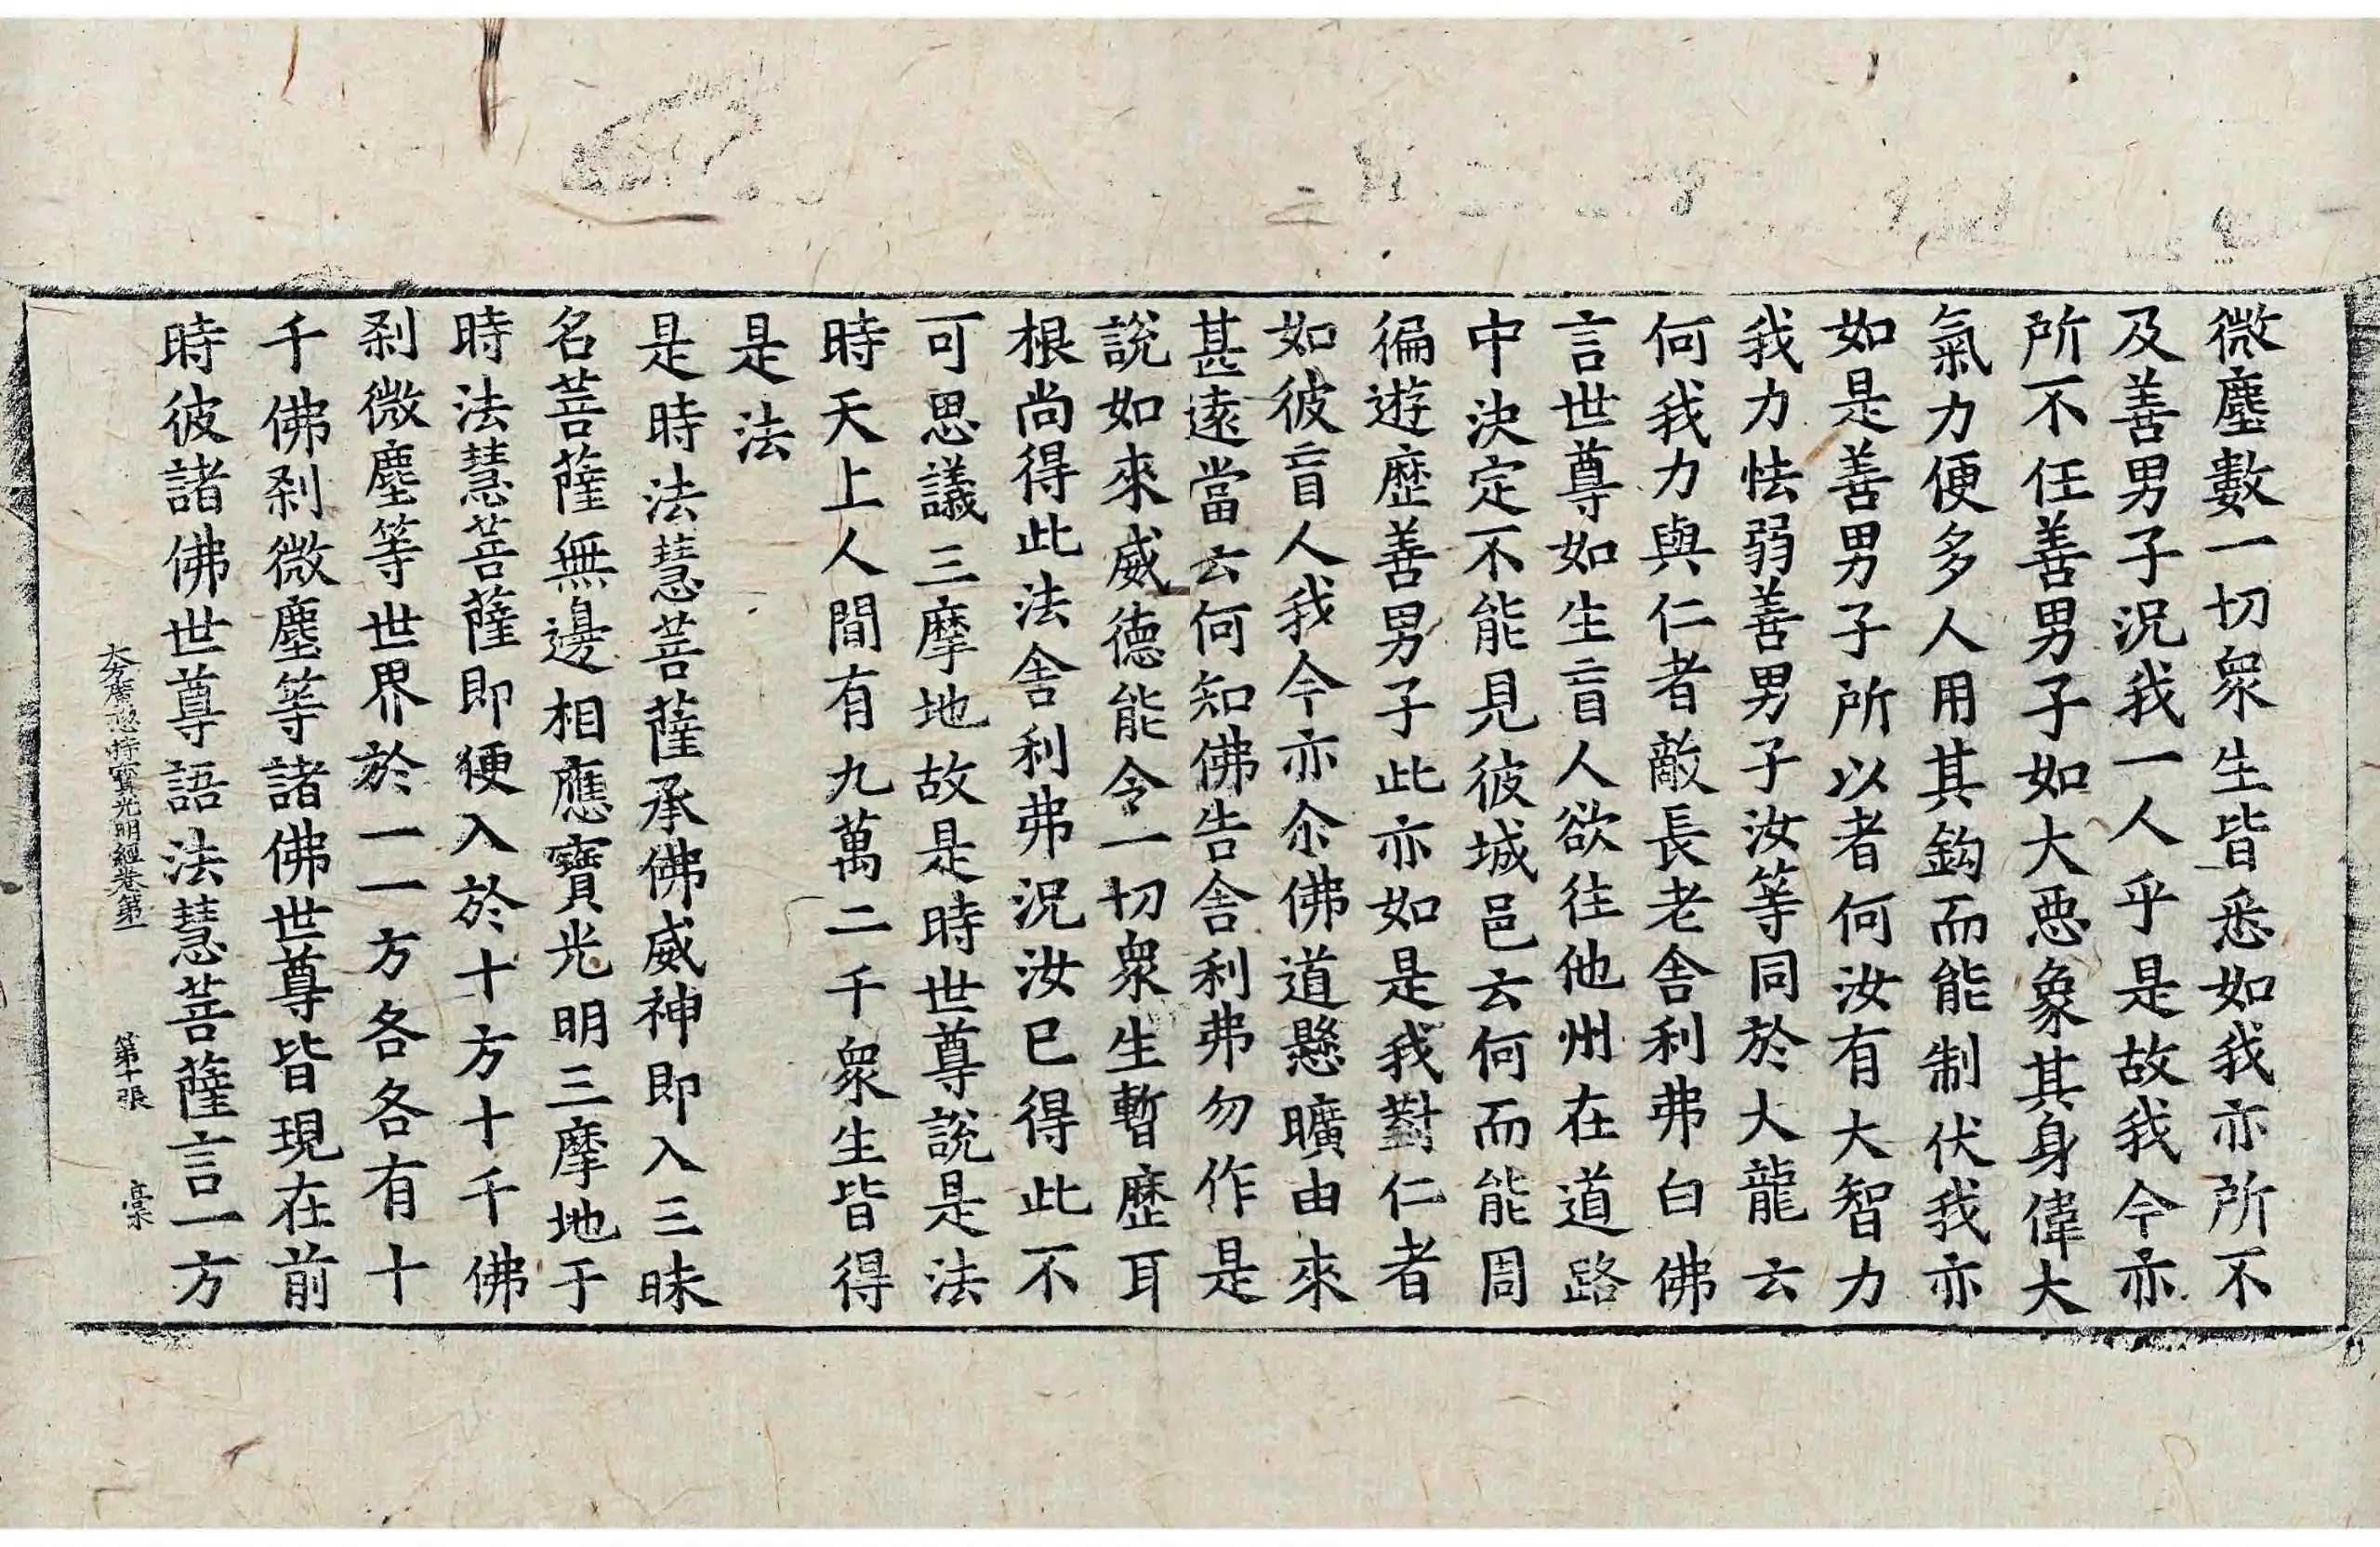 微塵數一切衆生皆悉如我亦所不
及善男子況我一人乎是故我今亦
所不任善男子如大惡象其身偉大
氣力便多人用其鈎而能制伏我亦
如是善男子所以者何汝有大智力
我力怯弱善男子汝等同於大龍云
何我力與仁者敵長老舍利弗白佛
言世尊如生盲人欲往他州在道路
中決定不能見彼城邑云何而能周
徧遊歷善男子此亦如是我對仁者
如彼盲人我今亦尒佛道懸曠由來
甚遠當云何知佛告舍利弗勿作是
說如來威德能令一切衆生暫歷耳
根尚得此法舍利弗況汝已得此不
可思議三摩地故是時世尊說是法
時天上人間有九萬二千衆生皆得
是法
是時法慧菩薩承佛威神即入三昧
名菩薩無邊相應寶光明三摩地于
時法慧菩薩即便入於十方十千佛
刹微塵等世界於一一方各各有十
千佛刹微塵等諸佛世尊皆現在前
時彼諸佛世尊語法慧菩薩言一方
大方廣惣持寶光明經卷第一 第十張 槀